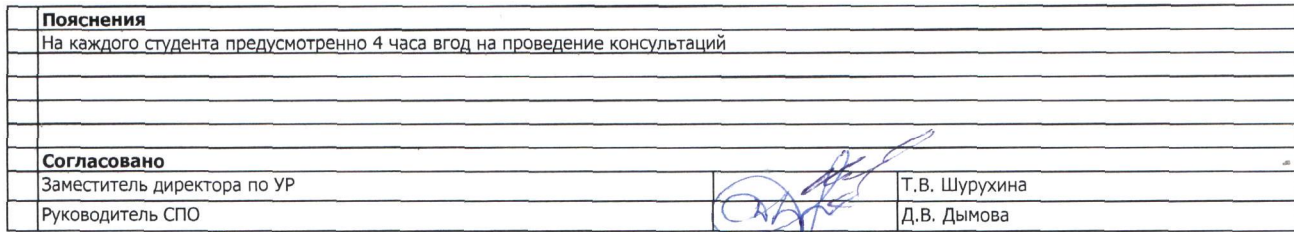 Пояснения
На каждого студента предусмотренно 4 часа вгод на проведение консультаций
Согласовано
Заместитель директора по УР Т.В. Шурухина
Руководитель СПО Д.В. Дымова